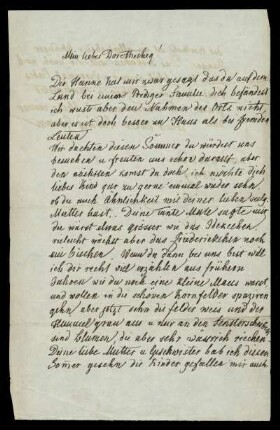 Mein liebes Dorotheechen!
Die Hanne hat mir zwar gesagt das du auf dem
Land bei einer Prediger Familie dich befindest
ich wuste aber den Nahmen des Orts nicht,
aber es ist doch besser zu Haus als bei fremden
Leuten
Wir dachten diesen Sommer du würdest uns
besuchen u freuten uns schon darauf, aber
den nächsten komst du doch, ich möchte dich
liebes Kind gar zu gerne einmal wieder sehn
ob du noch Ähnlichkeit mit deiner lieben
Mutter hast. Deine tante Male sagte mir
du warst etwas grösser wie das
vieleicht wächst aber das noch
ein bischen. Wenn du dann bei uns bist will
ich dir recht viel erzählen aus frühern
Jahren wie du noch eine kleine Maus warst
und wollen in die schönen Kornfelder spaziren
gehn aber jetzt sehn die felder weis und der
Himmel grau aus u nur an den Fenstern
sind Blumen, die aber sehr riechen.
Deine liebe Mutter u Geschwister hab ich diesen
Somer gesehn die Kinder gefallen mir auch